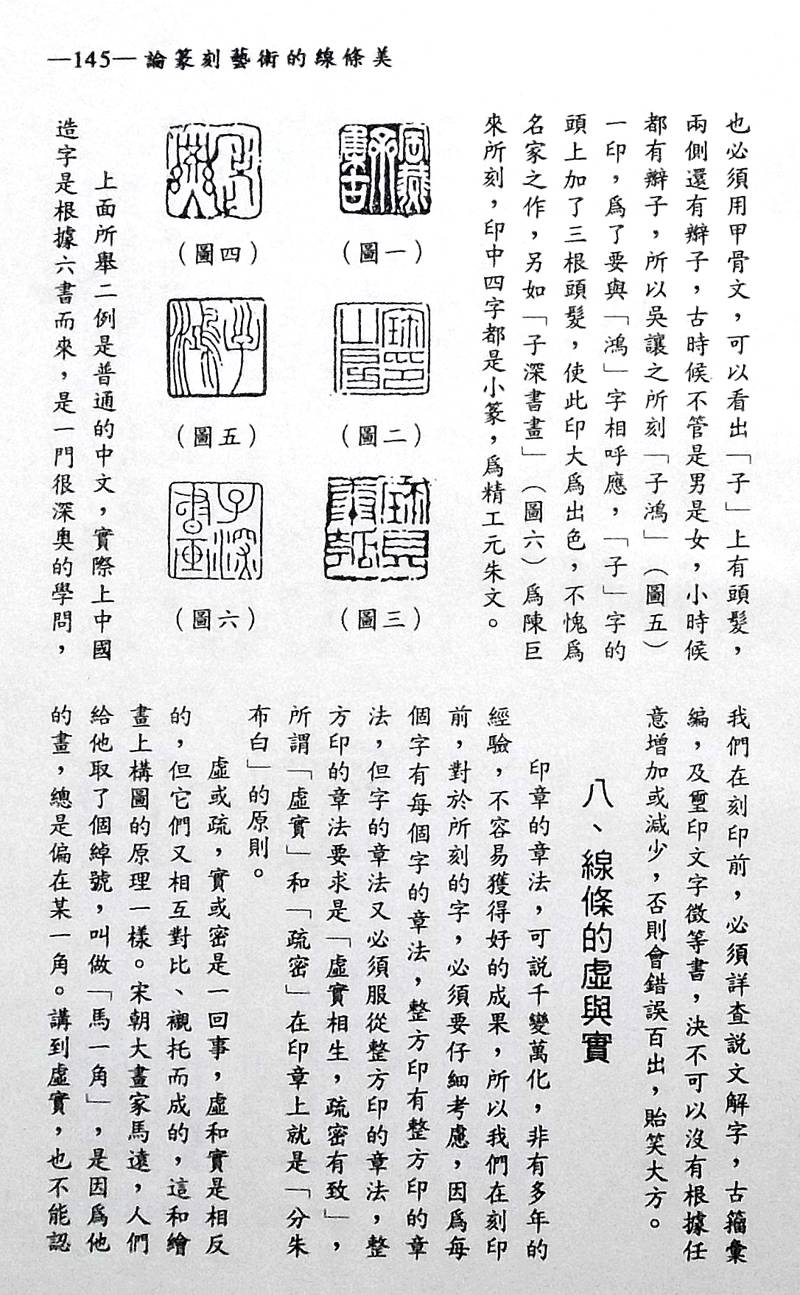 —145—論篆刻藝術的線條美
也必須用甲骨文，可以看出「子」上有頭髮，
兩側還有辮子，古時候不管是男是女，小時候
都有辮子，所以吳讓之所刻「子鴻」（圖五）
一印，爲了要與「鴻」字相呼應，「子」字的
頭上加了三根頭髮，使此印大爲出色，不愧爲
名家之作，另如「子深書畫」（圖六）爲陳巨
來所刻，印中四字都是小篆，爲精工元朱文。
（圖一）
（圖二）
（圖三）
（圖四）
（圖五）
（圖六）
上面所舉二例是普通的中文，實際上中國
造字是根據六書而來，是一門很深奧的學問，
我們在刻印前，必須詳查説文解字，古籀彙
編，及璽印文字徵等書，決不可以沒有根據任
意增加或減少，否則會錯誤百出，貽笑大方。
八、線條的虛與實
印章的章法，可説千變萬化，非有多年的
經驗，不容易獲得好的成果，所以我們在刻印
前，對於所刻的字，必須要仔細考慮，因爲每
個字有每個字的章法，整方印有整方印的章
法，但字的章法又必須服從整方印的章法，整
方印的章法要求是「虛實相生，疏密有致」，
所謂「虛實」和「疏密」在印章上就是「分朱
布白」的原則。
虛或疏，實或密是一回事，虛和實是相反
的，但它們又相互對比、襯托而成的，這和繪
畫上構圖的原理一樣。宋朝大畫家馬遠，人們
給他取了個綽號，叫做「馬一角」，是因爲他
的畫，總是偏在某一角。講到虛實，也不能認